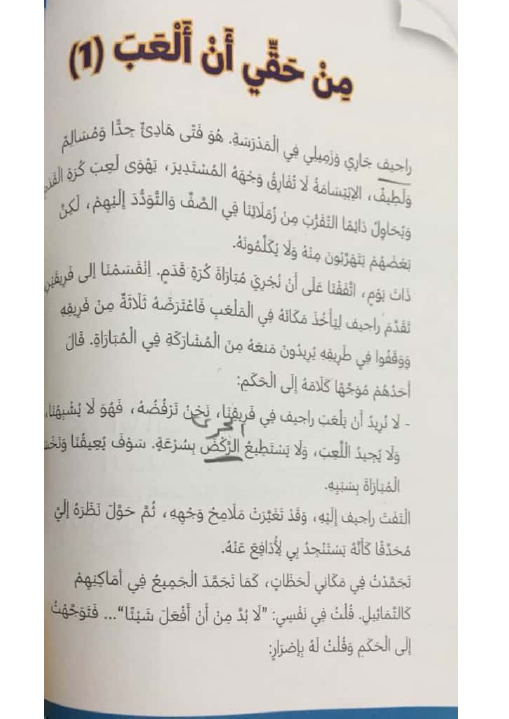 مِنْ حَقِّي أَنْ أَلْعَبَ (1)
راجيف جَارِي وَزَمِيلِي فِي الْمَدْرَسَةِ. هُوَ فَتًى هَادِئٌ جِدًّا وَمُسَالِمٌ
وَلَطِيفٌ، الاِبْتِسَامَةُ لَا تُفَارِقُ وَجْهَهُ الْمُسْتَدِيرَ، يَهْوَى لَعِبَ كُرَةِ الْقَدَمِ
وَيُحَاوِلُ دَائِمًا التَّقَرُّبَ مِنْ زُمَلَائِنَا فِي الصَّفِّ وَالتَّوَدُّدَ إِلَيْهِمْ، لَكِنَّ
بَعْضَهُمْ يَتَهَرَّبُونَ مِنْهُ وَلَا يُكَلِّمُونَهُ.
ذَاتَ يَوْمٍ، اتَّفَقْنَا عَلَى أَنْ نُجْرِيَ مُبَارَاةَ كُرَةِ قَدَمٍ. اِنْقَسَمْنَا إلى فَرِيقَيْنِ
تَقَدَّمَ راجيف لِيَأْخُذَ مَكَانَهُ فِي الْمَلْعَبِ فَاعْتَرَضَهُ ثَلَاثَةٌ مِنْ فَرِيقِهِ
وَوَقَفُوا فِي طَرِيقِهِ يُرِيدُونَ مَنعَهُ مِنَ الْمُشَارَكَةِ فِي الْمُبَارَاةِ. قَالَ
أَحَدُهُمْ مُوَجِّهًا كَلَامَهُ إِلَى الْحَكَمِ:
- لَا نُرِيدُ أَن يَلْعَبَ راجيف فِي فَرِيقِنَا، نَحْنُ نَرْفُضُهُ، فَهُوَ لَا يُشْبِهُنَا،
وَلَا يُجِيدُ اللَّعِبَ، وَلَا يَسْتَطِيعُ الرَّكْضَ بِسُرْعَةٍ. سَوْفَ يُعِيقُنَا وَنَخْسَ
الْمُبَارَاةَ بِسَبَبِهِ.
الْتَفَتَ راجيف إِلَيْهِ، وَقَدْ تَغَيَّرَتْ مَلَامِحُ وَجْهِهِ، ثُمَّ حَوَّلَ نَظَرَهُ إِلَيَّ
مُحَدِّقًا كَأَنَّهُ يَسْتَنْجِدُ بِي لِأُدَافِعَ عَنْهُ.
تَجَمَّدْتُ فِي مَكَانِي لَحَظَاتٍ، كَمَا تَجَمَّدَ الْجَمِيعُ فِي أَمَاكِنِهِمْ
كَالتَّمَاثِيلِ. قُلْتُ فِي نَفْسِي: "لَا بُدَّ مِنْ أَنْ أَفْعَلَ شَيْئًا"... فَتَوَجَّهْتُ
إِلَى الْحَكَمِ وَقُلْتُ لَهُ بِإِصْرَارٍ: